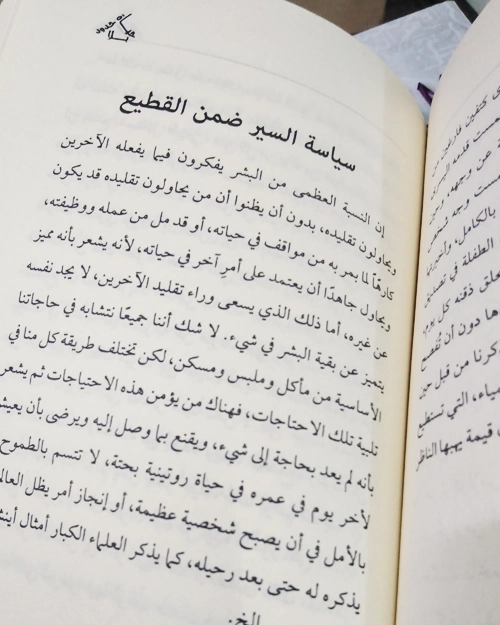 سياسة السير ضمن القطيع
إن النسبة العظمى من البشر يفكرون فيما يفعله الآخرين
ويحاولون تقليده، بدون أن يظنوا أن من يحاولون تقليده قد يكون
كارهًا لما يمر به من مواقف في حياته، أو قد مل من عمله ووظيفته،
ويحاول جاهدًا أن يعتمد على أمرٍ آخر في حياته، لأنه يشعر بأنه مميز
عن غيره، أما ذلك الذي يسعى وراء تقليد الآخرين، لا يجد نفسه
يتميز عن بقية البشر في شيء. لا شك أننا جميعًا نتشابه في حاجاتنا
الأساسية من مأكل وملبس ومسكن، لكن تختلف طريقة كل منا في
تلبية تلك الاحتاجات، فهناك من يؤمن هذه الاحتياجات ثم يشعر
بأنه لم يعد بحاجة إلى شيء، ويقنع بما وصل إليه ويرضى بأن يعيش
لآخر يوم في عمره في حياة روتينية بحتة، لا تتسم بالطموح
بالأمل في أن يصبح شخصية عظيمة، أو إنجاز أمر يظل العالم
يذكره له حتى بعد رحيله، كما يذكر العلماء الكبار أمثال
إلخ.
عن وجهه،
وجه
بالكامل،
الطفلة في
ذقنه كل يوم
دون أن
من قبل حين
التي تستطيع
قيمة يهبها الناظر